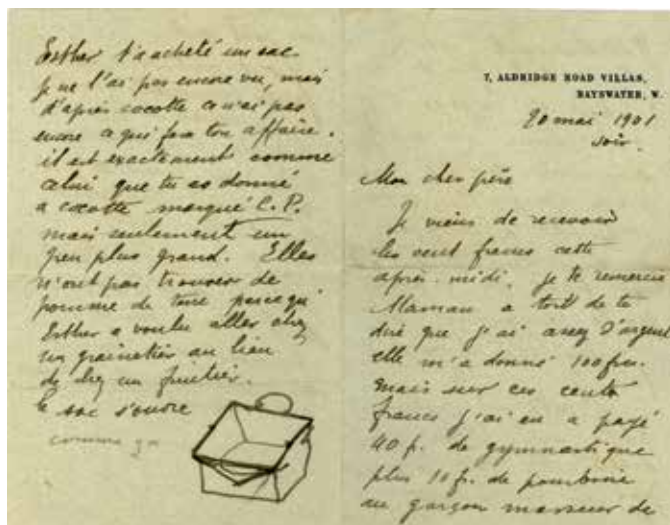 Esther t'a acheté un sac
je ne l'ai pas encore vu, mais
d'après cocotte ce n'ai pas
encore ce qui fera ton affaire.
il est exactement comme
celui que tu as donné
a cocotte marqué C.P.
mais seulement un
peu plus grand. Elles
n'ont pas trouver de
pomme de terre parce qu'
Esther a voulu aller chez
un grainetier au lieu
de chez un fruitier.
le sac s'ouvre
comme ça
7, ALDRIDGE ROAD VILLAS,
BAYSWATER, W.
20 mai 1901
soir.
Mon cher père
Je viens de recevoir
les cent francs cette
après-midi. je te remercie
Maman a tort de te
dire que j'ai assez d'argent
elle m'a donné 100 frs.
mais sur ces cents
francs j'ai eu a payé
40 f. de gymnastique
plus 10 f. de pourboire
au garçon masseur de